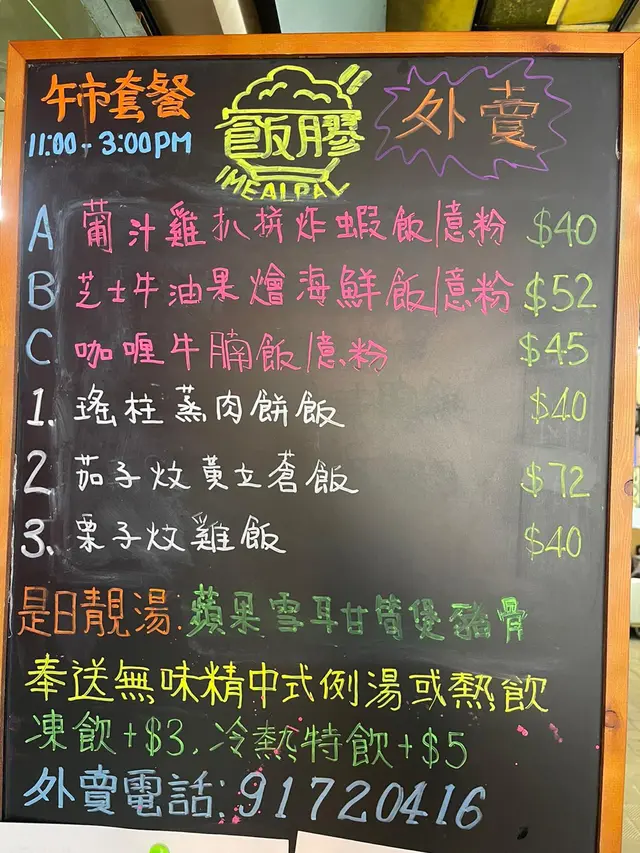 午市套餐
11:00 - 3:00PM
飯膠
IMEALPAL
外賣
A 葡汁雞扒拼炸蝦飯/意粉 $40
B 芝士牛油果燴海鮮飯/意粉 $52
C 咖喱牛腩飯/意粉 $45
1. 瑤柱蒸肉餅飯 $40
2 茄子炆黃立蒼飯 $72
3. 栗子炆雞飯 $40
是日靚湯: 蘋果雪耳甘筍煲豬骨
奉送無味精中式例湯或熱飲
凍飲+$3, 冷熱特飲+$5
外賣電話: 91720416